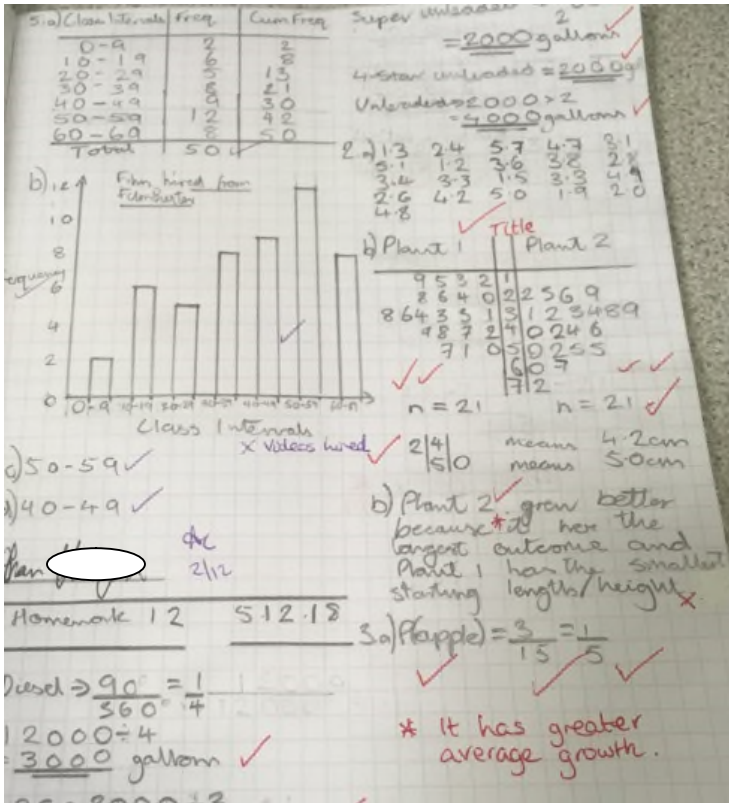 5.a) Class Intervals Freq Cum Freq
0-9 2 2
10-19 6 8
20-29 5 13
30-39 8 21
40-49 9 30
50-59 12 42
60-69 8 50
Total 50
b) Film hired from
FilmBuster
12
10
8
6
4
2
0
0-9 10-19 20-29 30-39 40-49 50-59 60-69
Class Intervals
x Videos hired
c) 50-59
40-49
2/12
Homework 12 5.12.18
Diesel => 90°/360° = 1/4
12000÷4
= 3000 gallons
Super unleaded
2
= 2000 gallons
4-Star unleaded = 2000
Unleaded => 2000 × 2
= 4000 gallons
2.a) 1.3 2.4 5.7 4.7 3.1
5.1 1.2 3.6 3.8 2.8
3.4 3.3 1.5 3.3 4.9
2.6 4.2 5.0 1.9 2.0
4.8
Title
b) Plant 1 Plant 2
9 5 3 2 | 1 |
8 6 4 0 | 2 | 2 5 6 9
8 6 4 3 3 1 | 3 | 1 2 3 4 8 9
9 8 7 2 | 4 | 0 2 4 6
7 1 0 | 5 | 0 2 5 5
| 6 | 0 7
| 7 | 2
n = 21 n = 21
2|4| means 4.2cm
|5|0 means 5.0cm
b) Plant 2 grew better
because * it has the
largest outcome and
Plant 1 has the smallest
starting lengths/height x.
3a) P(apple) = 3/15 = 1/5
* It has greater
average growth.